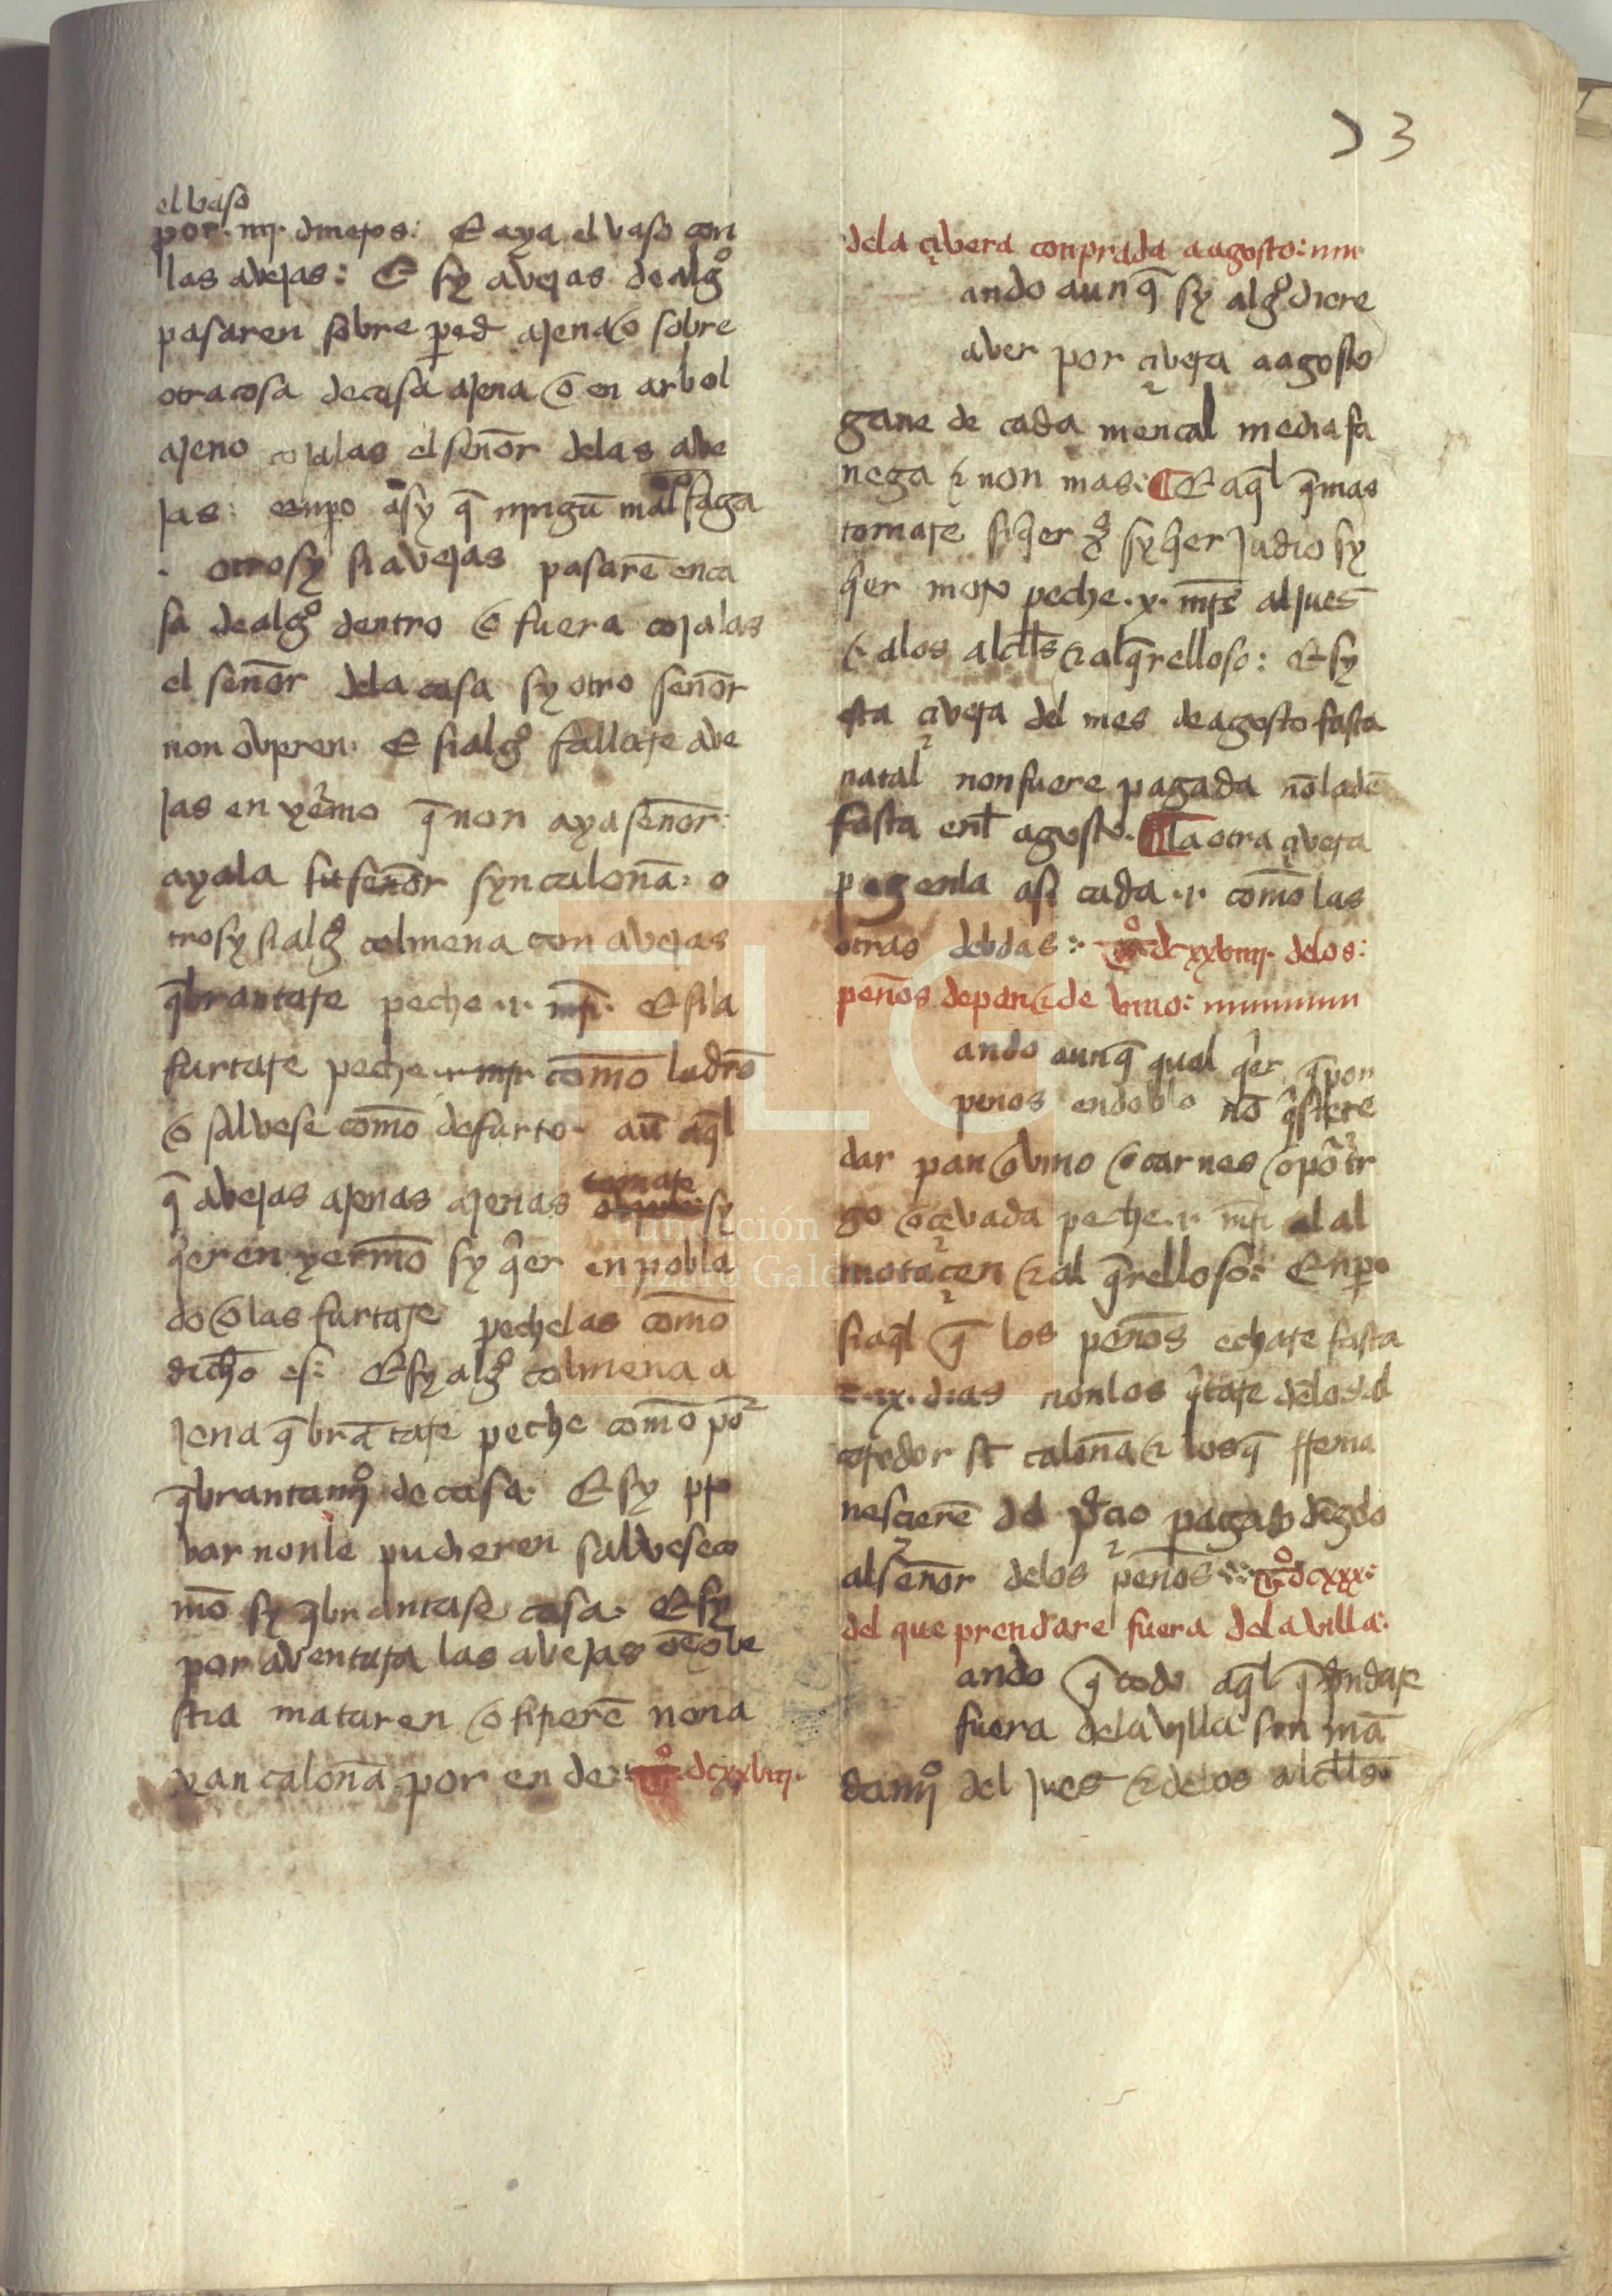 73
el vaso
por .iiij. dineros: E aya el vaso con
las abejas: E sy avejas de algº
pasaren sobre pared ajena o sobre
otra cosa de casa ajena o en arbol
ajeno cojalas el señor delas abe
jas: enpo asy q̄ ningū mal faga
. otrosy si avejas pasarē en ca
sa de algº dentro o fuera cojalas
el señor dela casa sy otro señor
non ovyeren. E si algº fallare abe
jas en yermo q̄ non aya señor:
ayala su señor syn caloña. o
trosy si algº colmena con avejas
q̄brantare peche .i. mṙi. E si la
furtare peche como ladrō
o salvese como de furto. aū aq̄l
q̄ avejas ajenas ajenas tomare sy
q̄er en yermo sy q̄er en pobla
do o las furtare pechelas como
dicho es: E sy algº colmena a
jena q̄brātare peche como por
q̄brantamjº de casa. E sy pro
bar non le pudieren salvese co
mo sy q̄brantase casa. E sy
por aventura las abejas obe
stia mataren o firierē non a
yan caloña por en de: tº dcxxviij.
dela çivera conprada a agosto:
ando aun q̄ sy algº diere
aver por çivera a agosto
gane de cada mencal media fa
nega τ non mas: E aq̄l q̄ mas
tomare siq̄er sy q̄er judio sy
q̄er moro peche .x. mr̄s al jues
τ alos alcłłs τ al q̄relloso: E sy
esta çivera del mes de agosto fasta
natal non fuere pagada nō la dē
fasta enł agosto. la otra çivera
pagenla asi cada .i. como las
otras debdas: tº dcxxviiij. delos:
peños de pan τ de vino:
ando aun q̄ qual q̄er q̄ por
penos en doblo nō q̄siere
dar pan o vino o carnes o por tr
go o çevada peche .i. mṙi al al
motaçen τ al q̄relloso: Enpo
si aq̄l q̄ los peños echare fasta
.ix. dias non los q̄tare delos el
corredor sī caloña τ los q̄ rrema
nesçierē del pçio pagado
al señor delos peños: tº dcxxx:
del que prendare fuera dela villa:
ando q̄ todo aq̄l q̄ prendare
fuera dela vylla syn mā
damjº del jues τ delos alcłłs
Fundación
Lázaro Galdiano
FLG